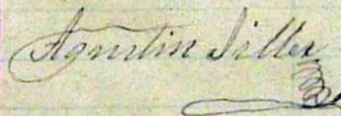 Agustin Siller